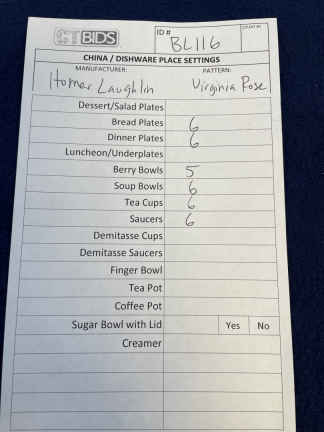 CTBIDS
ID # BL116
CHINA / DISHWARE PLACE SETTINGS
MANUFACTURER: PATTERN:
Homer Laughlin Virginia Rose
Dessert/Salad Plates
Bread Plates 6
Dinner Plates 6
Luncheon/Underplates
Berry Bowls 5
Soup Bowls 6
Tea Cups 6
Saucers 6
Demitasse Cups
Demitasse Saucers
Finger Bowl
Tea Pot
Coffee Pot
Sugar Bowl with Lid Yes No
Creamer